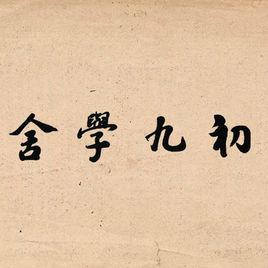 初九學舍